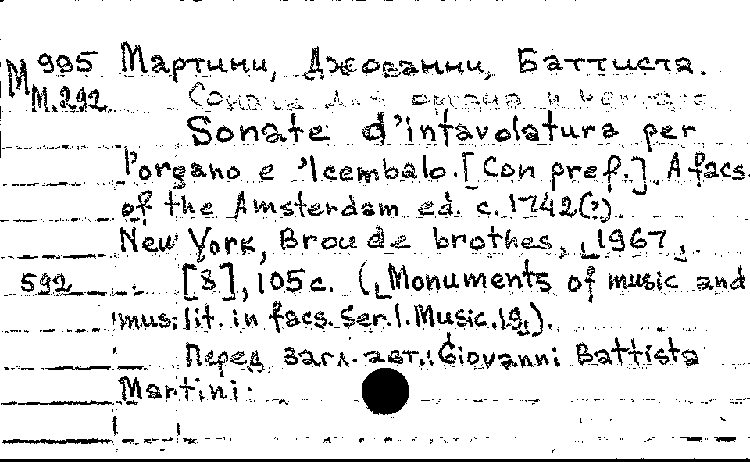 M 995 Мартини, Джованни, Баттиста.
М.292 Соната для органа и
Sonate d'intavolatura per
l'organo e 'lcembalo. [Con pref.]. A facs.
of the Amsterdam ed. c. 1742(?).
New York, Broude brothes, [1967].
592 [8], 105 с. ([Monuments of music and
mus. lit. in facs. Ser. I. Music. 19]).
Перед загл. авт.: Giovanni Battista
Martini.